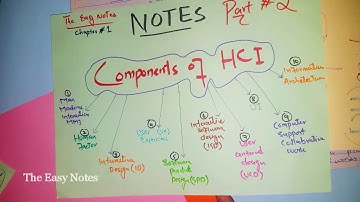 The Easy Notes
Chapter #1
NOTES
Part #2
Components of HCI
①
Man
Machine
② Human
Factor
③ Interactive
Design (ID)
④
User (UX)
Experience
⑤ Software
Product
Design (SPD)
⑥ Interactive
Software
design
(ISD)
⑦ User
centered
design
(UCD)
⑧ UI
⑨ Computer
Support
Collaborative
Work
⑩ Information
Architecture
The Easy Notes